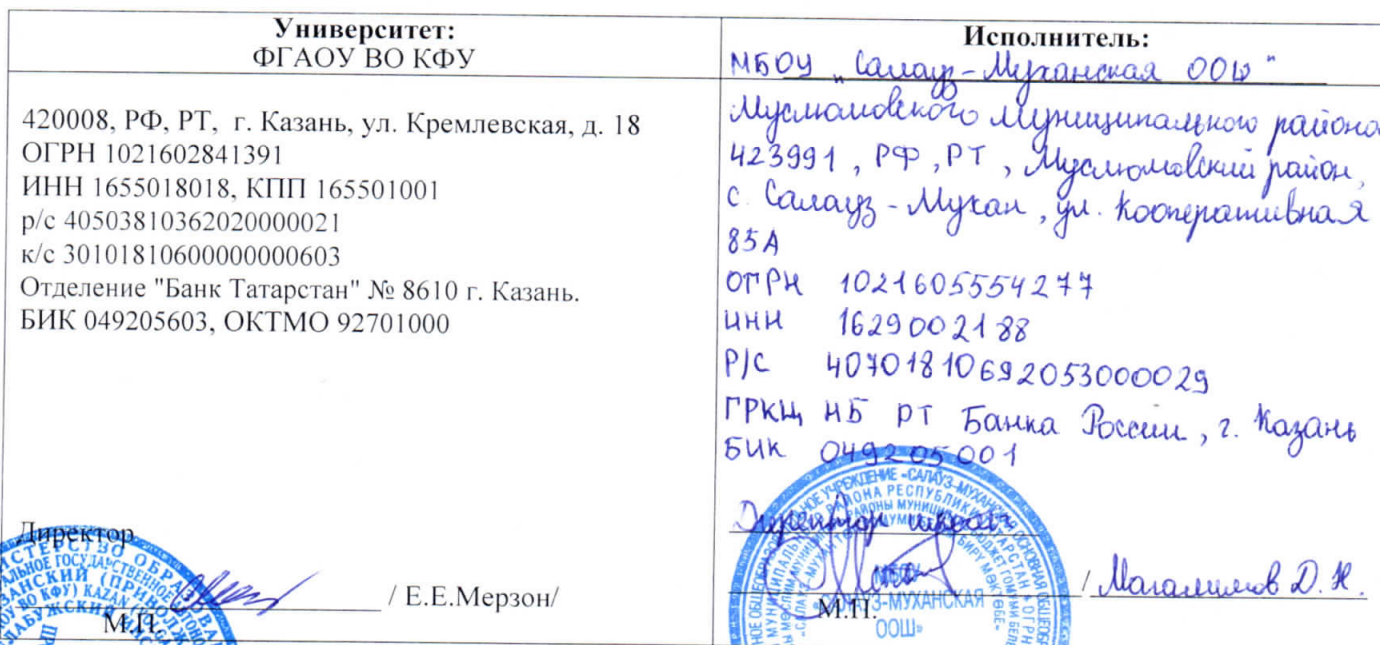 Университет:
ФГАОУ ВО КФУ
420008, РФ, РТ, г. Казань, ул. Кремлевская, д. 18
ОГРН 1021602841391
ИНН 1655018018, КПП 165501001
р/с 40503810362020000021
к/с 30101810600000000603
Отделение "Банк Татарстан" № 8610 г. Казань.
БИК 049205603, ОКТМО 92701000
Директор
/ Е.Е.Мерзон/
М.П.
Исполнитель:
МБОУ „Салауз-Муханская ООШ"
Муслюмовского муниципального района
423991, РФ, РТ, Муслюмовский район,
с. Салауз-Мухан, ул. Кооперативная
85А
ОГРН 1021605554277
ИНН 1629002188
Р/С 40701810692053000029
ГРКЦ НБ РТ Банка России, г. Казань
БИК 049205001
Директор школы
/ Магалимов Д. Н.
М.П.
МУХАНСКАЯ
ООШ»